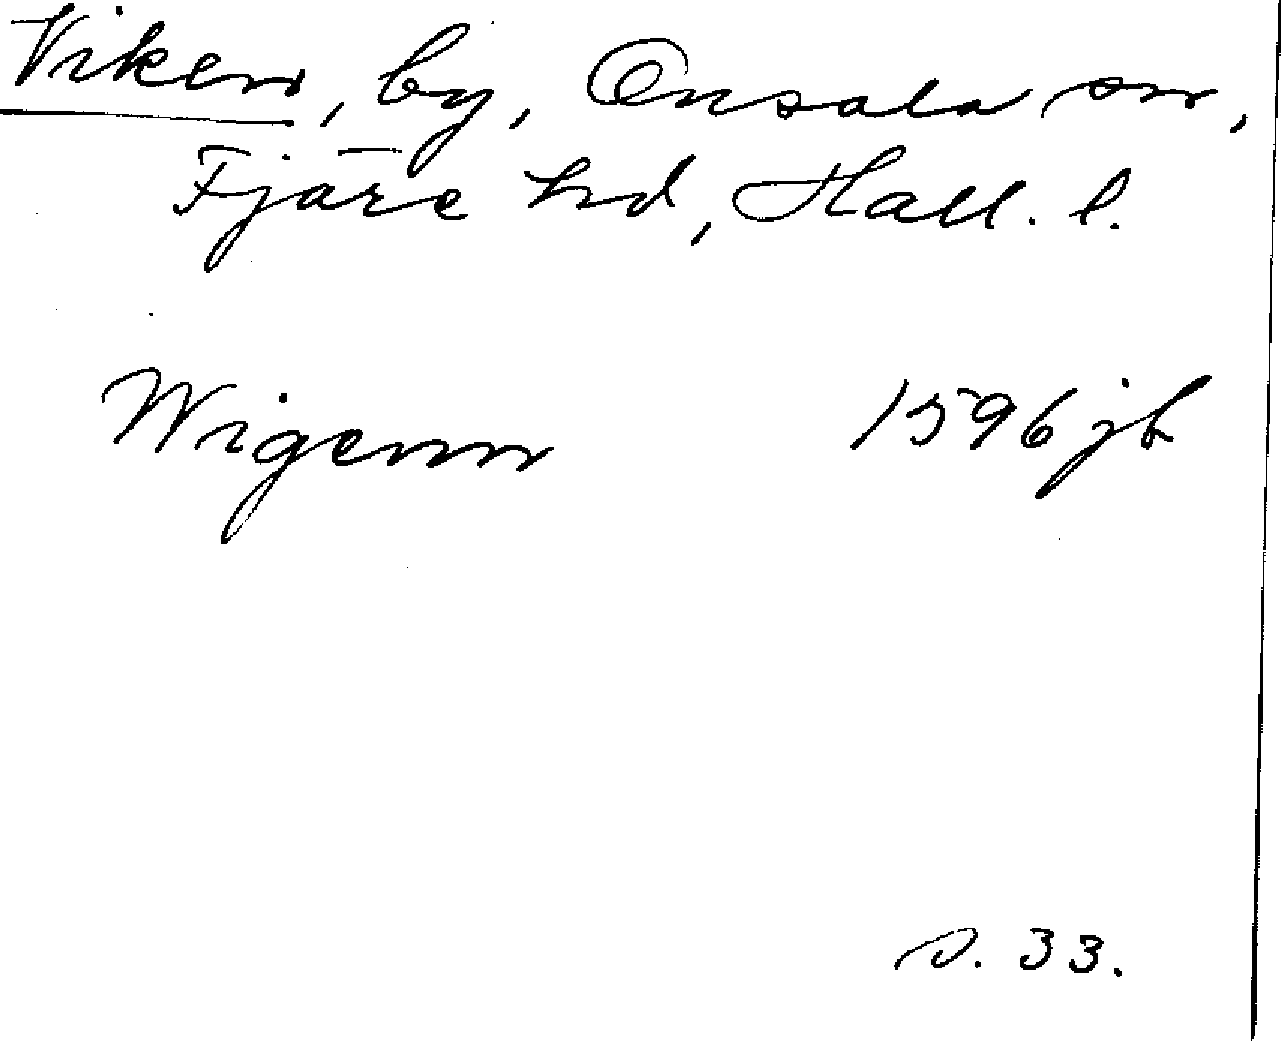 Viken, by, Onsala sn,
Fjäre hd, Hall. l.
Wigenn 1596 jb
s. 33.